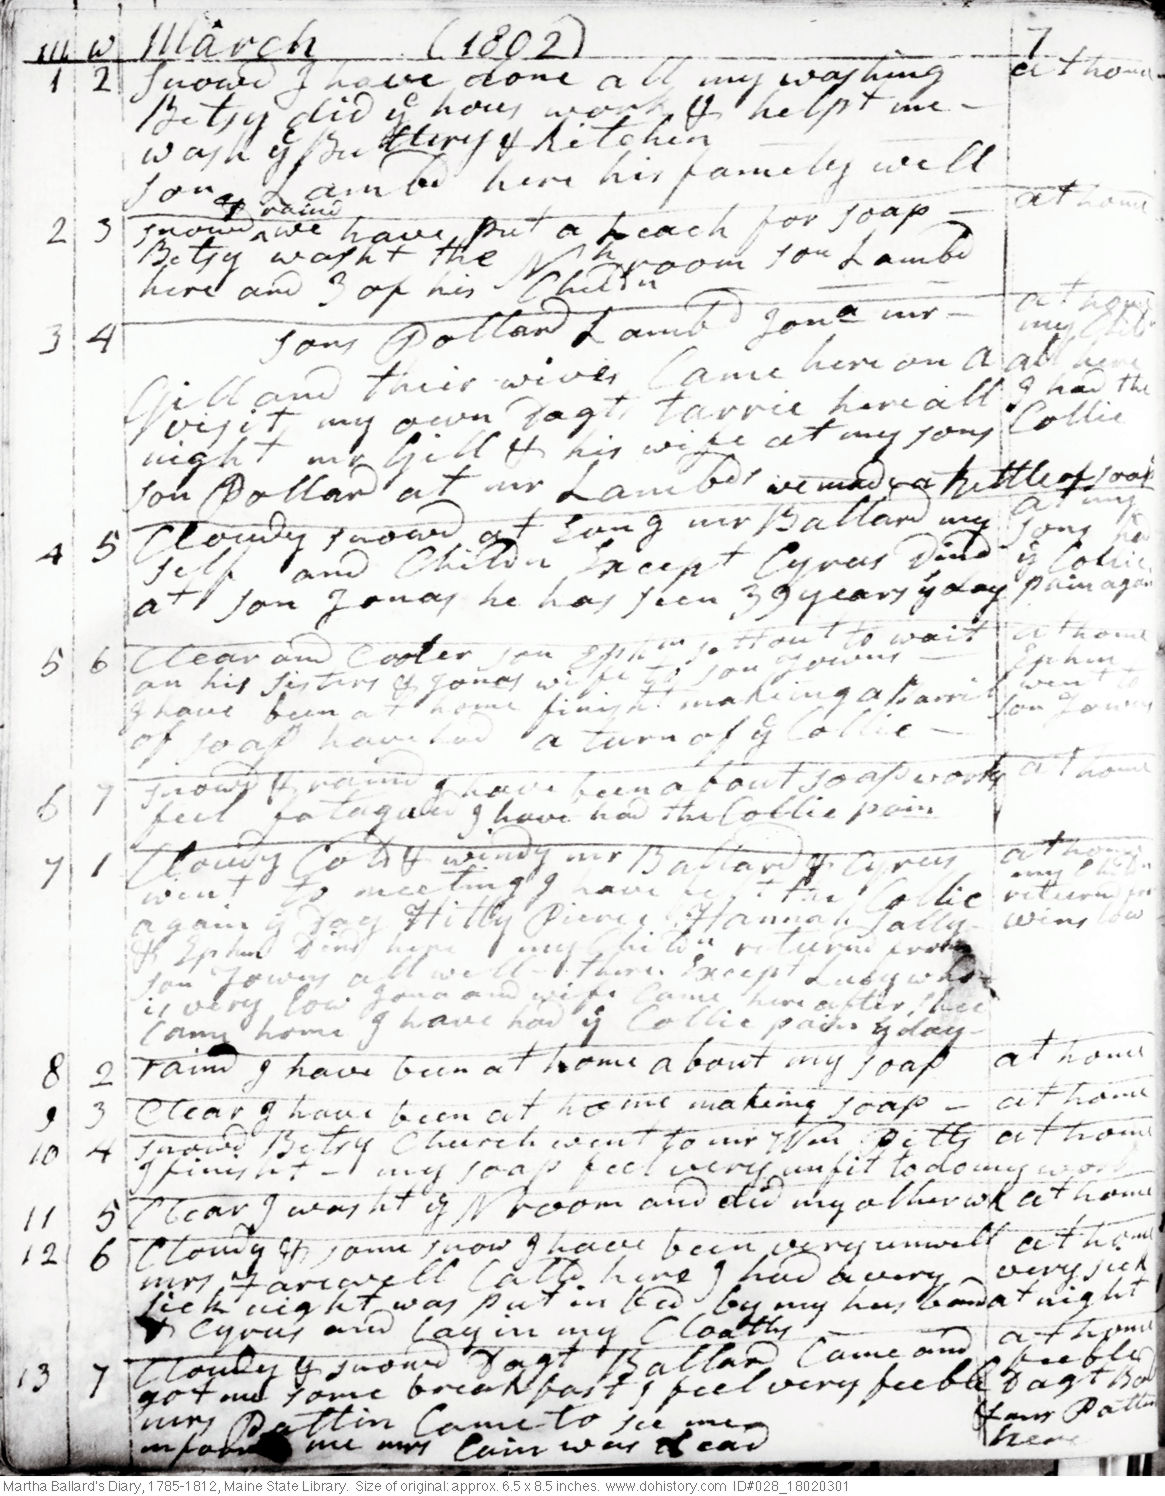 m w March (1802) 7
1 2 Snowd I have done all my washing at home
Betsy did ye hous work & helpt me -
wash ye Buttery & Kitchen
son Lambd here his famely well
2 3 snowd & raind we have put a Leach for soap - at home
Betsy washt the N room son Lambd
here and 3 of his Childn
3 4 sons Pollard Lambd Jona mr - at home
my Childn
Gill and their wives Came here on a all here
visit, my own Dagts tarrie here all I had the
night mr Gill & his wife at my sons Collic
son Pollard at mr Lambds we made a Kettle of soap
4 5 Cloudy snowd at Long mr Ballard my at my
self and Childn Except Cyrus Dind sons had
at son Jonas he has seen 39 years ys day ye Collic
pain again
5 6 Clear and Cooler son Ephm sett out to wait at home
on his sisters & Jonas wife to son Towns - Ephm
I have been at home finisht making a barril went to
of soap have had a turn of ye Collic - son Towns
6 7 snowd & raind I have been about soap work at home
feel fatagud I have had the Collic pain
7 1 Cloudy Cold & windy mr Ballard & Cyrus at home
went to meeting I have the Collic my Childn
again ys Day Hitty Pierce Hannah Sally returnd from
& Ephm Dind here my Childn returnd from winslow
son Towns all well there Except Lucy who
is very low Jona and wife Came here after thee
Came home I have had ye Collic pain ys day -
8 2 raind I have been at home about my soap at home
9 3 Clear I have been at home making soap - at home
10 4 snowd Betsy Church went to mr Wm Pitts at home
I finisht - my soap feel very unfit to do my work
11 5 Clear I washt ye N room and did my other wk at home
12 6 Cloudy & some snow I have been very unwell at home
mrs Farewell Calld here I had a very very sick
sick night was put in bed by my husband at night
& Cyrus and Lay in my Cloaths
13 7 Cloudy & snowd Dagt Ballard Came and at home
got me some breakfast I feel very feeble feeble
mrs Pattin Came to see me Dagt Bald
informd me mrs Cain was dead & mrs Pattin
here